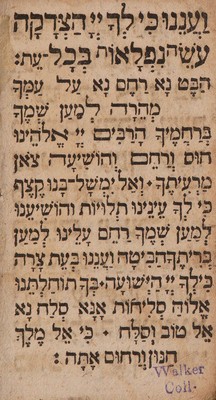 וַעֲנֵנוּ כִּי לְךָ יְיָ הַצְּדָקָה
עֹשֵׂה נִפְלָאוֹת בְּכָל־עֵת:
הַבֶּט נָא רַחֶם נָא עַל עַמְּךָ
מְהֵרָה לְמַעַן שְׁמֶךָ
בְּרַחֲמֶיךָ הָרַבִּים יְיָ אֱלֹהֵינוּ
חוּס וְרַחֵם וְהוֹשִׁיעָה צֹאן
מַרְעִיתֶךָ · וְאַל יִמְשָׁל־בָּנוּ קֶצֶף
כִּי לְךָ עֵינֵינוּ תְלוּיוֹת וְהוֹשִׁיעֵנוּ
לְמַעַן שְׁמֶךָ רַחֵם עָלֵינוּ לְמַעַן
בְּרִיתֶךָ הַבִּיטָה וַעֲנֵנוּ בְּעֵת צָרָה
כִּי לְךָ יְיָ הַיְשׁוּעָה · בְּךָ תוֹחַלְתֵּנוּ
אֱלוֹהַּ סְלִיחוֹת אָנָּא סְלַח נָא
אֵל טוֹב וְסַלָּח · כִּי אֵל מֶלֶךְ
חַנּוּן וְרַחוּם אָתָּה:
Walker
Coll.